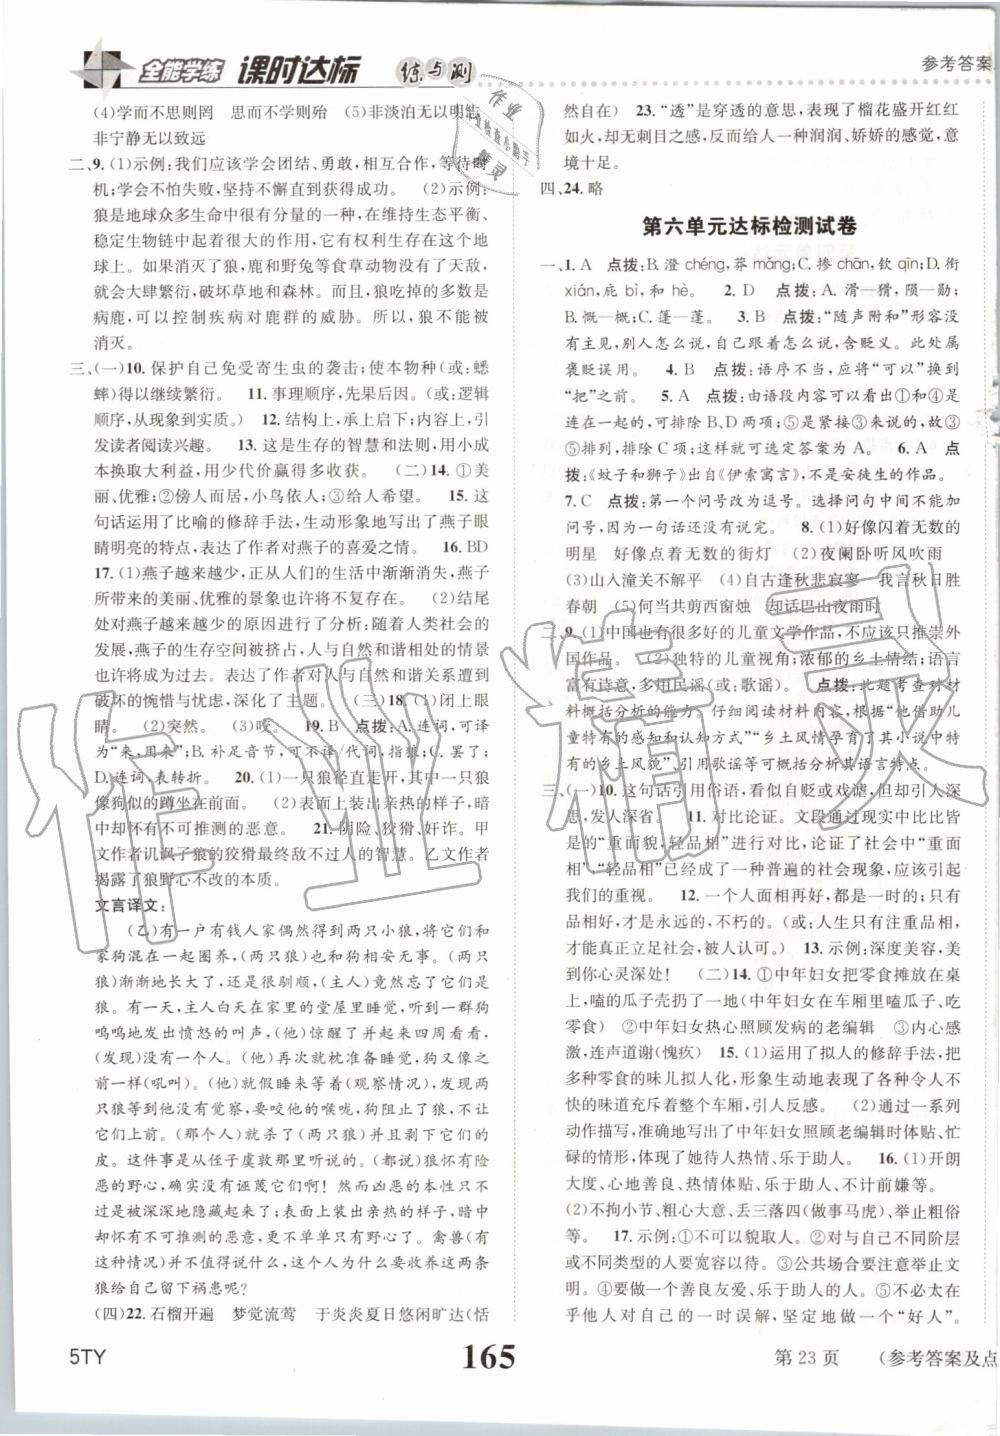 全能学练 课时达标 练与测
参考答案
(4)学而不思则罔 思而不学则殆 (5)非淡泊无以明志
非宁静无以致远
二、9. (1)示例:我们应该学会团结、勇敢,相互合作,等待时
机;学会不怕失败,坚持不懈直到获得成功。 (2)示例:
狼是地球众多生物中的一种,在维持生态平衡、
稳定生物链中有很大的作用,它有权利生存在这个地
球上。如果消灭了狼,鹿和野兔等食草动物没有了天敌,
就会大肆繁衍,破坏草地和森林。而且,狼吃掉的多是
病鹿,可以控制疾病对鹿群的威胁。所以,狼不能被
消灭。
三、(一)10. 保护自己免受寄生虫的袭击;使本物种(或:蟋
蟀)得以继续繁衍。 11. 事理顺序,先果后因。(或:逻辑
顺序,从现象到实质) 12. 结构上,承上启下;内容上,引
发读者阅读兴趣。 13. 这是生存的智慧和法则,用小成
本换取大利益,用少代价赢得多收获。 (二)14. ①美
丽、优雅;②傍人而居、小鸟依人;③给人希望。 15. 这
句话运用了比喻的修辞手法,生动形象地写出了燕子眼
睛明亮的特点,表达了作者对燕子的喜爱之情。 16. BD
17. (1)燕子越来越少,正从人们的生活中渐渐消失,燕子
所带来的美丽、优雅的景象也许将不复存在。 (2)结尾
处对燕子越来越少的感叹,表达了随着人类社会的发
展,燕子的生存空间被挤占,人与自然和谐相处的愿景
也许将成为过去。表达了作者对人与自然和谐相处遭到
破坏的惋惜与忧虑,深化了主题。 (三)18. (1)闭上眼
睛。 (2)突然。 (3)咬。 19. B 点拨:A. 连词,可译
为“来,用来”;B. 补足音节,可不译/代词,指狼;C. 罢了;
D. 连词,表转折。 20. (1)一只狼径直走开,其中一只狼
像狗似的蹲坐在前面。 (2)表面上装出亲热的样子,暗
中却怀有不可推测的恶意。 21. 阴险、狡猾、奸诈。甲
文作者讥讽了狼的狡猾最终敌不过人的智慧。乙文作者
揭露了狼野心不改的本质。
文言译文:
(乙)有一户有钱人家偶然得到两只小狼,将它们和
家狗混在一起圈养,(两只狼)也和狗相安无事。(两只
狼)渐渐地长大了,还是很驯顺,(主人)竟然忘了它们是
狼。有一天,主人白天在家里的堂屋里睡觉,听到群狗
呜呜地发出愤怒的叫声,(他)惊醒了并起来四周看看,
(发现)没有一个人。(他)再次就枕准备睡觉,狗又像之
前一样(吼叫)。(他)就假睡来等着(观察情况),发现两
只狼等到他没有觉察,要咬他的喉咙,狗阻止狼,不让
它们上前。(那个人)就杀了(两只狼)并且剥下了它们的
皮。这件事是从侄子虞敦那里听说的。(都说)狼怀有险
恶的野心,确实没有诬蔑它们啊!然而凶恶的本性只不过
是被深深地隐藏罢了,表面上装出亲热的样子,暗中
却怀有不可推测的恶意,更不单单只有野心了。禽兽(的
行为)并不值得说什么,这个人为什么要收养这两条
狼给自己留下祸患呢?
(四)22. 石榴开遍 梦觉流莺 于炎炎夏日悠闲旷达(恬
然自在) 23. “透”是穿透的意思,表现了榴花盛开红红
如火,有灼灼刺目之感,反而给人一种润润、娇娇的感觉,意
境十足。
四、24. 略
第六单元达标检测试卷
一、1. A 点拨:B. 澄 chéng,莽 mǎng;C. 掺 chān,钦 qīn;D. 衔
xián,庇 bì,和 hè。 2. D 点拨:A. 滑—猾,陨—勋;
B. 慨—概;C. 蓬—蓬。 3. B 点拨:“随声附和”形容没
有主见,别人怎么说,自己跟着怎么说,含贬义。此处属
褒贬误用。 4. B 点拨:语序不当,应将“可以”换到
“把”之前。 5. A 点拨:由语段内容可以看出①和④是
连在一起的,可排除B、D两项;⑤是紧接③来说的,故③
⑤排列,排除C项;这样就可选定答案为A。 6. A 点
拨:《蚊子和狮子》出自《伊索寓言》,不是安徒生的作品。
7. C 点拨:第一个问号改为逗号。选择问句中间不能加
问号,因为一句话还没有说完。 8. (1)好像闪着无数的
明星 好像点着无数的街灯 (2)夜阑卧听风吹雨
(3)山入潼关不解平 (4)自古逢秋悲寂寥 我言秋日胜
春朝 (5)何当共剪西窗烛 却话巴山夜雨时
二、9. (1)中国也有很多好的儿童文学作品,不应该只推崇外
国作品。 (2)独特的儿童视角;浓郁的乡土情结;语言
富有诗意,多用民谣(或:歌谣)。 点拨:此题考查对材
料概括分析的能力。仔细阅读材料内容,根据“他借助儿
童特有的感知和认知方式”“乡土风情孕育了其小说中特
有的乡土风貌”、引用歌谣等可概括分析其语言特点。
三、(一)10. 这句话引用俗语,看似自贬或戏谑,但却引人深
思,发人深省。 11. 对比论证。文段通过现实中比比皆
是的“重面相,轻品相”进行对比,论证了社会中“重面
相”“轻品相”已经成了一种普遍的社会现象,应该引起
我们的重视。 12. 一个人面相再好,都是一时的;只有
品相好,才是永远的,不朽的。(或:人生只有注重品相,
才能真正立足社会,被人认可。) 13. 示例:深度美容,美
到你心灵深处! (二)14. ①中年妇女把零食摊放在桌
上,嗑的瓜子壳扔了一地(中年妇女在车厢里嗑瓜子、吃
零食) ②中年妇女热心照顾发病的老编辑 ③内心感
激,连声道谢(愧疚) 15. (1)运用了拟人的修辞手法,把
多种零食的味儿拟人化,形象生动地表现了各种令人不
快的味道充斥着整个车厢,引人反感。 (2)通过一系列
动作描写,写出了中年妇女照顾老编辑时体贴、忙
碌的情形,体现了她待人热情、乐于助人。 16. (1)开朗
大度、心地善良、热情体贴、乐于助人、不计前嫌等。
(2)不拘小节、粗心大意、丢三落四(做事马虎)、举止粗俗
等。 17. 示例:①不可以貌取人。②尊重与自己不同阶层
或不同类型的人。③公共场合要注意言行举止文明。
④要做一个善良友爱、乐于助人的人。⑤不应因为别
人对自己的一时误解,坚定地做一个“好人”。
5TY
165
第 23 页
(参考答案及点
作业检查小助手
作业精灵
作业精灵